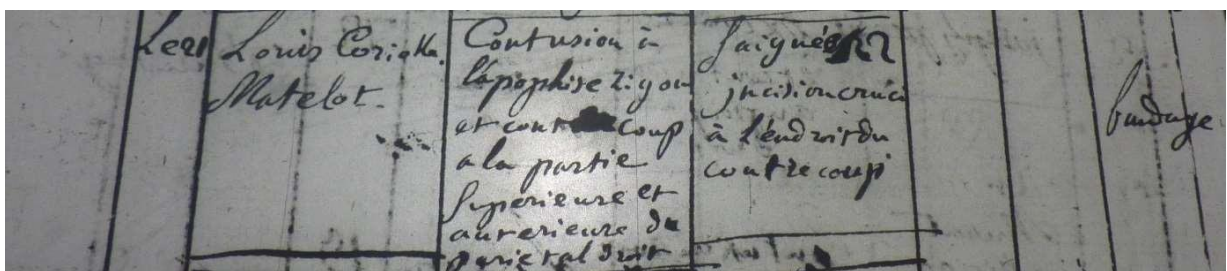 Le 21
Louis Coriotta.
Matelot.
Contusion à
l'apophise Zigom
et contre coup
a la partie
Superieure et
anterieure du
parietal droit
Saignées 2
incision cruci
à l'endroit du
contre coup
bandage.